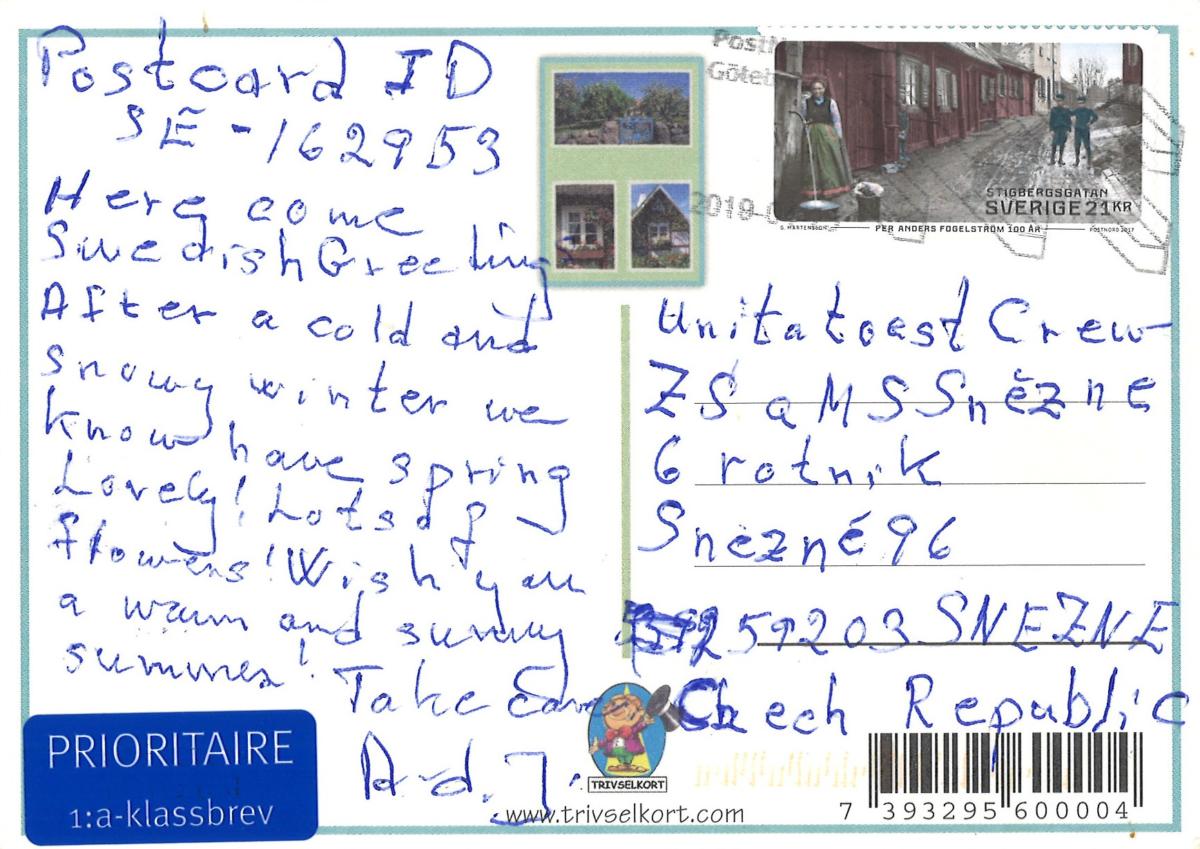 Postcard ID
SE-162953
Here come
Swedish Greeting
After a cold and
snowy winter we
know have spring
Lovely! Lots of
flowers! Wish you
a warm and sunny
summer!
Take Care
PRIORITAIRE
1:a-klassbrev
STIGBERGSGATAN
SVERIGE 21 KR
G. MÅRTENSSON
PER ANDERS FOGELSTRÖM 100 ÅR
POSTNORD 2017
Unitatoast Crew
ZŠ a MS Snězne
6 rotnik
Snezné 96
59203 SNEZNE
Chech Republic
TRIVSELKORT
www.trivselkort.com
7 393295 600004